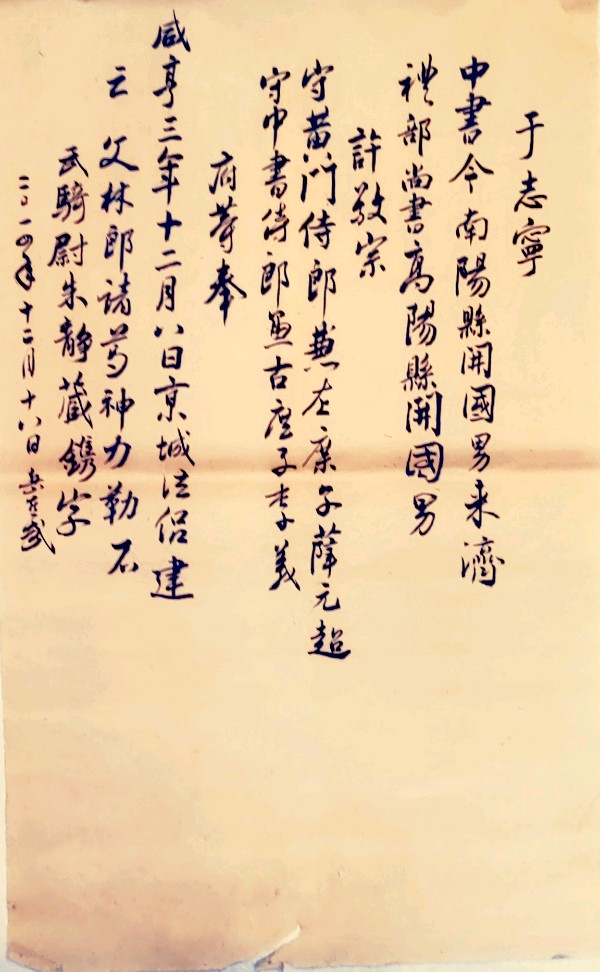 于志寧
中書令南陽縣開國男来濟
禮部尚書高陽縣開國男
許敬宗
守黃門侍郎兼左庶子薛元超
守中書侍郎兼右庶子李義
府等奉
咸亨三年十二月八日京城法侣建
立 文林郎諸葛神力勒石
武騎尉朱靜藏鐫字
二〇一四年十二月十八日